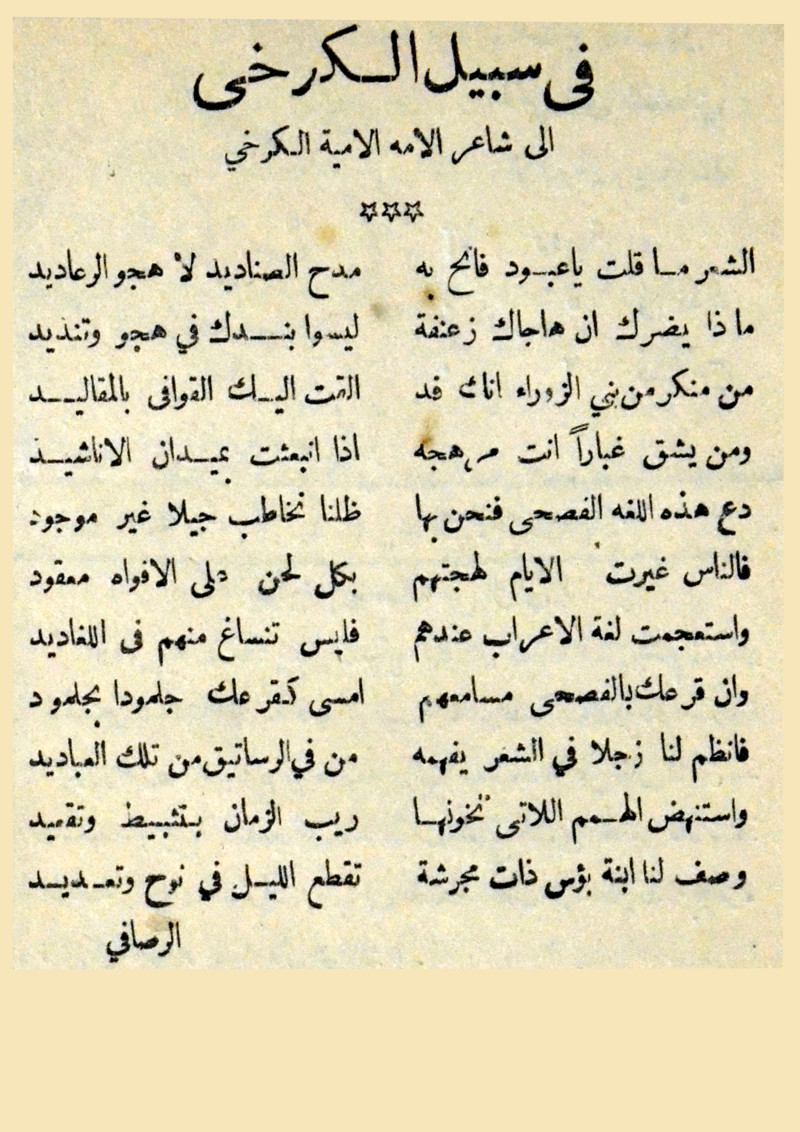 في سبيل الكرخي
الى شاعر الامه الامية الكرخي
☆☆☆
الشعر ما قلت ياعبود فانح به مدح الصناديد لا هجو الرعاديد
ما ذا يضرك ان هاجاك زعنفة ليسوا بندك في هجو وتنديد
من منكر من بني الزوراء انك قد القت اليك القوافي بالمقاليد
ومن يشق غباراً انت مرهجه اذا انبعثت بميدان الاناشيد
دع هذه اللغه الفصحى فنحن بها ظلنا نخاطب جيلا غير موجود
فالناس غيرت الايام لهجتهم بكل لحن على الافواه معقود
واستعجمت لغة الاعراب عندهم فليس تنساغ منهم فى اللغاديد
وان قرعك بالفصحى مسامعهم امسى كقرعك جلمودا بجلمود
فانظم لنا زجلا في الشعر يفهمه من في الرساتيق من تلك العباديد
واستنهض الهمم اللاتى تخونها ريب الزمان بتثبيط وتقعيد
وصف لنا ابنة بؤس ذات مجرشة تقطع الليل في نوح وتعديد
الرصافي